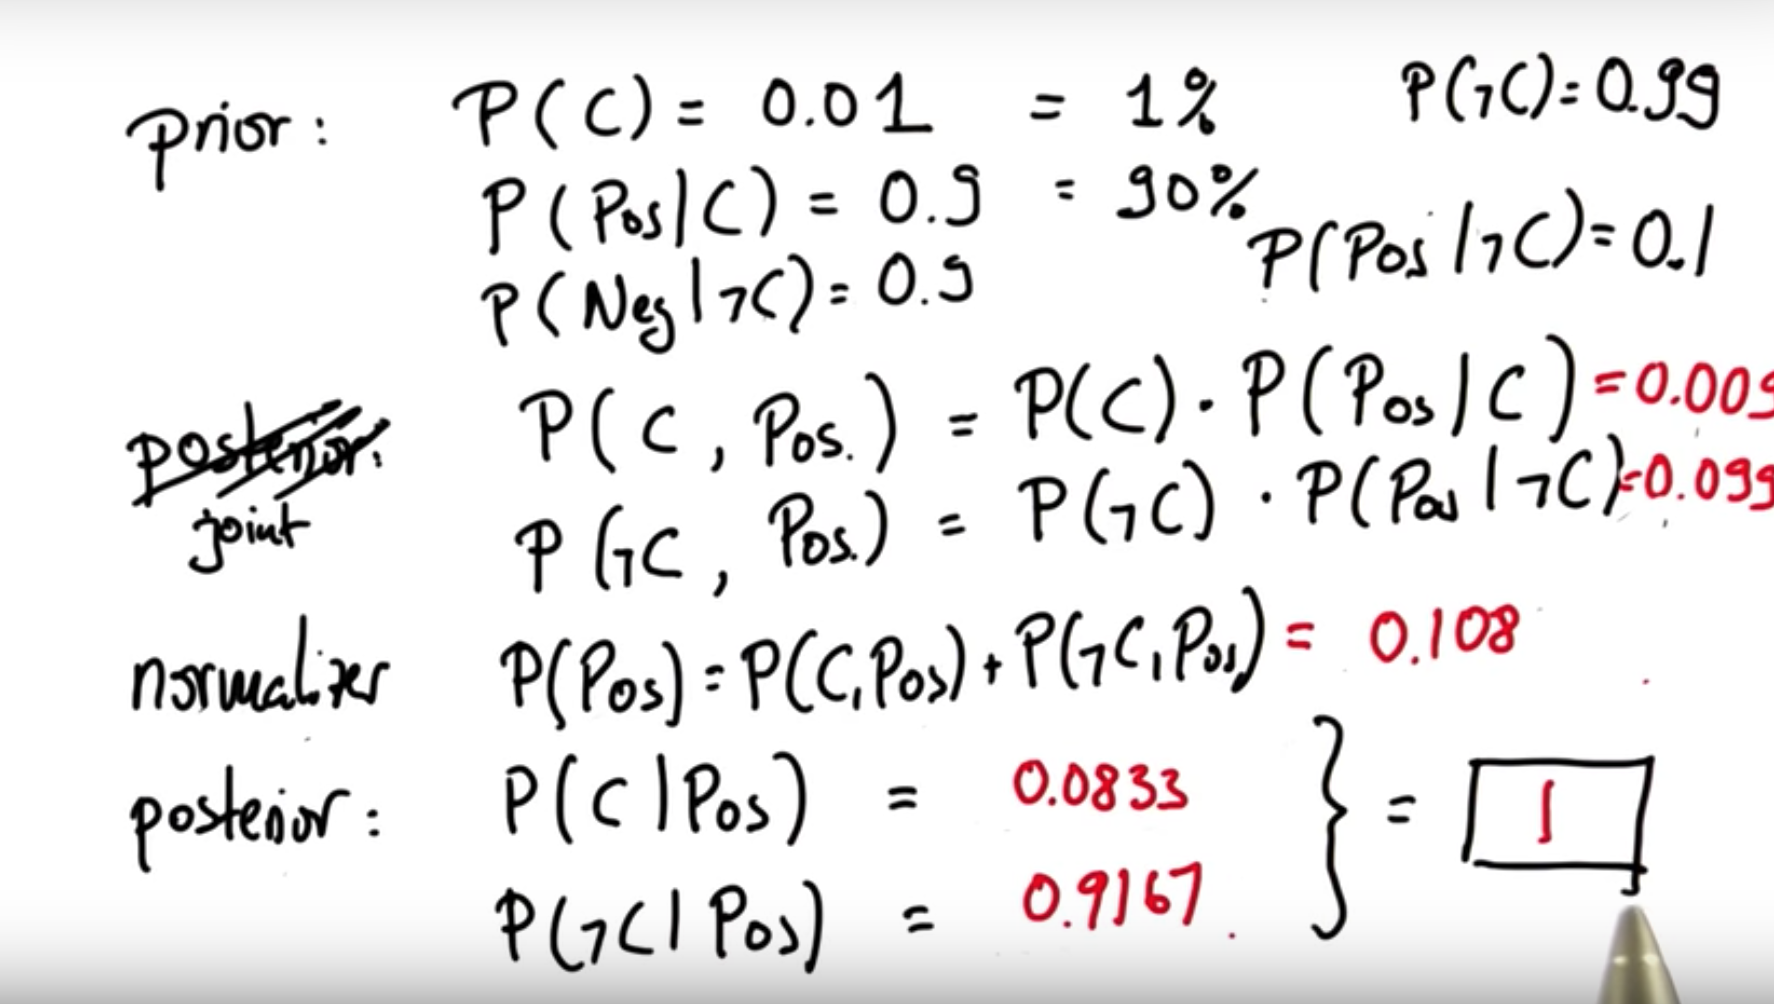 prior: P(C) = 0.01 = 1% P(¬C) = 0.99
P(Pos|C) = 0.9 = 90%
P(Pos|¬C) = 0.1
P(Neg|¬C) = 0.9
posterior: P(C, Pos.) = P(C) · P(Pos|C) = 0.009
joint P(¬C, Pos.) = P(¬C) · P(Pos|¬C) = 0.099
normalizer P(Pos) = P(C,Pos) + P(¬C,Pos) = 0.108
posterior: P(C|Pos) = 0.0833 } = 1
P(¬C|Pos) = 0.9167